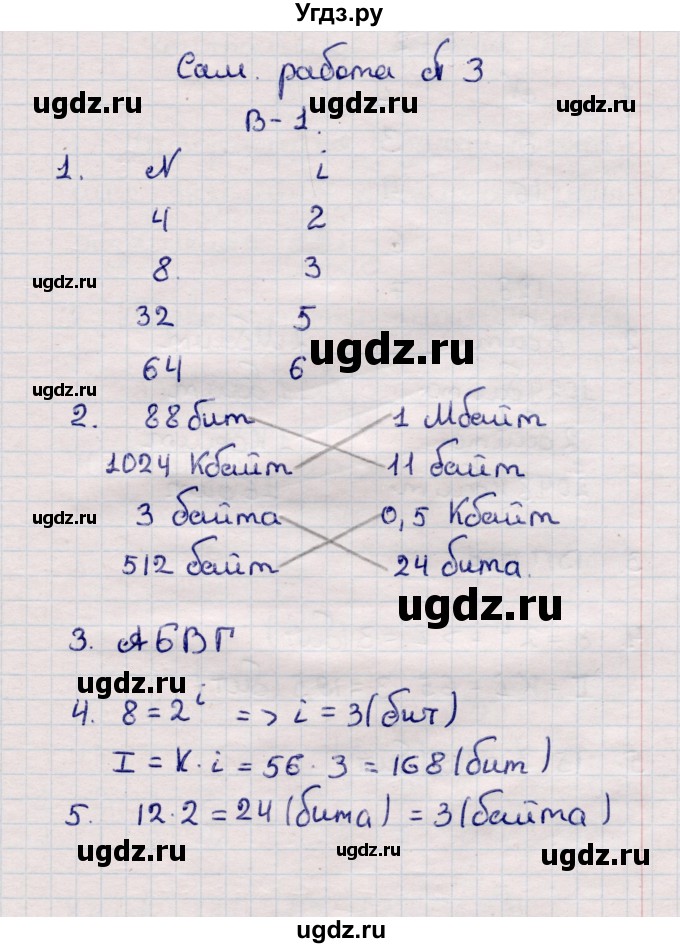 Угдз.ру
Сам. работа № 3
ugdz.ru ugdz.ru ugdz.ru
В-1.
1. N i
4 2
8. 3
ugdz.ru
32 5
ugdz.ru
64 6
ugdz.ru
2. 88 бит 1 Мбайт
1024 Кбайт 11 байт
ugdz.ru 3 байта 0,5 Кбайт
512 байт 24 бита.
ugdz.ru
3. АБВГ
ugdz.ru
4. 8 = 2^i => i = 3 (бит)
I = K · i = 56 · 3 = 168 (бит)
5. 12 · 2 = 24 (бита) = 3 (байта)
ugdz.ru ugdz.ru ugdz.ru
ugdz.ru